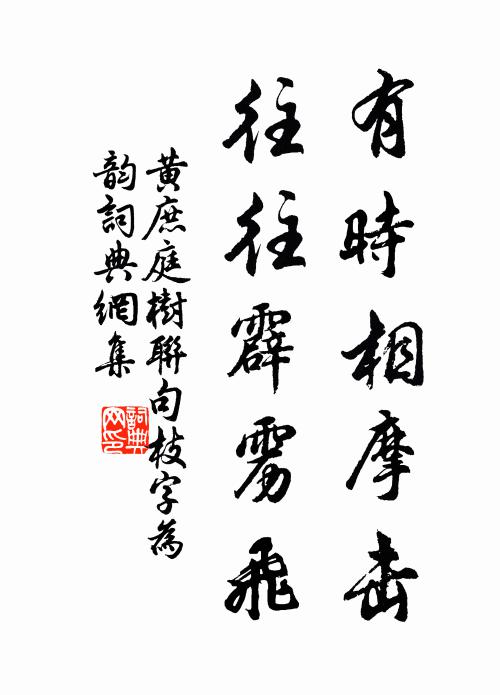 有時相摩击
往往霹雳飛
黄庶庭樹聯句枝字為
韵詞典網集
詞典
网印